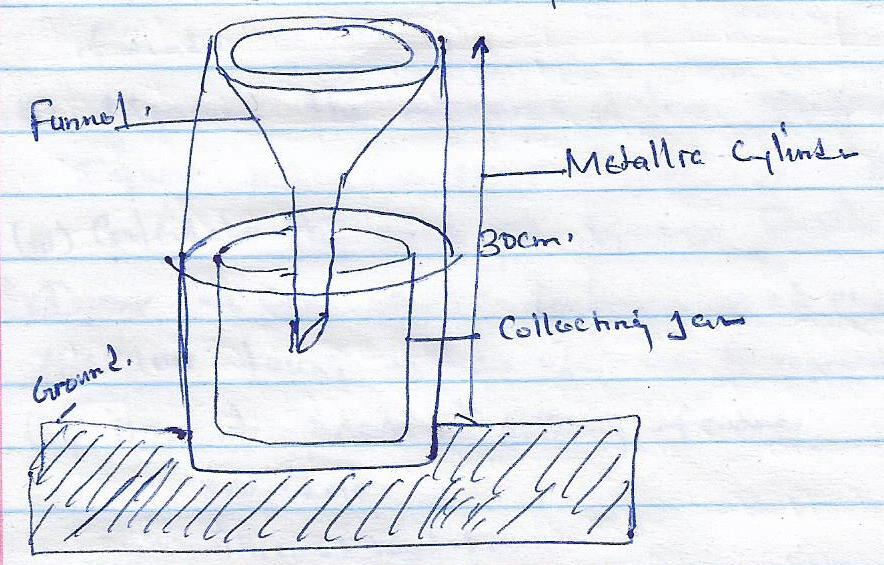 Funnel.
Metallic Cylinder
30cm.
Collecting Jar
Ground.